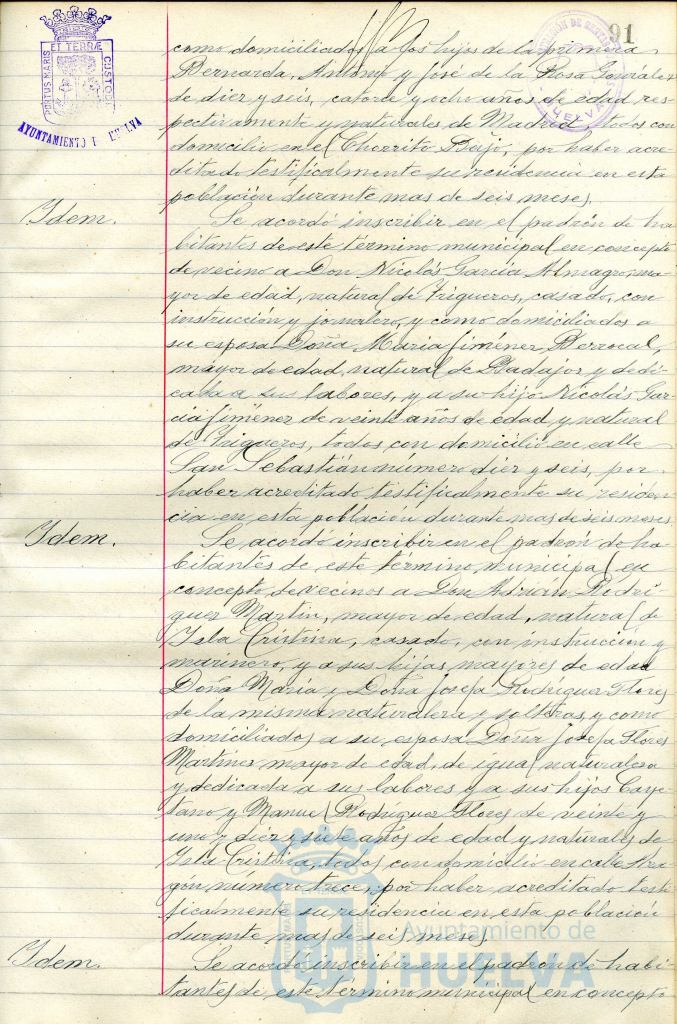 91
PORTUS MARIS ET TERRÆ CUSTODIA
AYUNTAMIENTO DE HUELVA
como domiciliados a los hijos de la primera
Bernarda, Antonio y José de la Rosa González
de diez y seis, catorce y ocho años de edad res-
pectivamente y naturales de Madrid, todos con
domicilio en el Chorrito Bajo, por haber acre-
ditado testificalmente su residencia en esta
población durante mas de seis meses.
Idem.
Se acordó inscribir en el padrón de ha-
bitantes de este término municipal en concepto
de vecino a Don Nicolás García Almagro, ma-
yor de edad, natural de Trigueros, casado, con
instrucción y jornalero, y como domiciliados a
su esposa Doña María Jiménez Berrocal,
mayor de edad, natural de Badajoz y dedi-
cada a sus labores, y a su hijo Nicolás Gar-
cía Jiménez de veinte años de edad y natural
de Trigueros, todos con domicilio en calle
San Sebastián número diez y seis, por
haber acreditado testificalmente su residen-
cia en esta población durante mas de seis meses
Idem.
Se acordó inscribir en el padrón de ha-
bitantes de este término municipal en
concepto de vecinos a Don Adrián Rodrí-
guez Martín, mayor de edad, natural de
Isla Cristina, casado, con instrucción y
marinero, y a sus hijas mayores de edad
Doña María y Doña Josefa Rodríguez Flores
de la misma naturaleza y solteras, y como
domiciliados a su esposa Doña Josefa Flores
Martínez mayor de edad, de igual naturaleza
y dedicada a sus labores y a sus hijos Caye-
tano y Manuel Rodríguez Flores de veinte y
uno y diez y siete años de edad y naturales de
Isla Cristina, todos con domicilio en calle Ara-
gón número trece, por haber acreditado testi-
ficalmente su residencia en esta población
durante mas de seis meses.
Idem.
Se acordó inscribir en el padrón de habi-
tantes de este término municipal en concepto
Ayuntamiento de
HUELVA